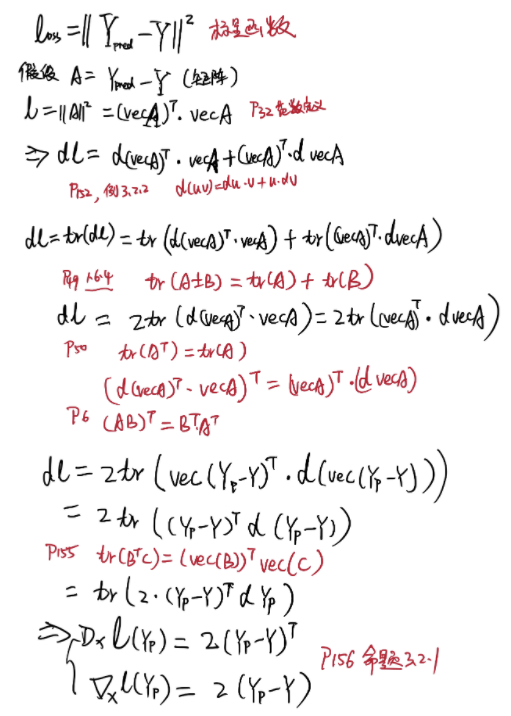 loss = ‖Y_pred − Y‖² 标量函数
假设 A = Y_pred − Y (矩阵)
l = ‖A‖² = (vecA)ᵀ · vecA P32 范数定义
⇒ dl = d(vecA)ᵀ · vecA + (vecA)ᵀ · d vecA
P152, 例3.2.2 d(uv) = du·v + u·dv
dl = tr(dl) = tr(d(vecA)ᵀ · vecA) + tr((vecA)ᵀ · dvecA)
P49 1.6.4 tr(A±B) = tr(A) + tr(B)
dl = 2tr(d(vecA)ᵀ · vecA) = 2tr((vecA)ᵀ · dvecA)
P50 tr(Aᵀ) = tr(A)
(d(vecA)ᵀ · vecA)ᵀ = (vecA)ᵀ · (d vecA)
P6 (AB)ᵀ = BᵀAᵀ
dl = 2tr(vec(Y_p−Y)ᵀ · d(vec(Y_p−Y)))
= 2tr((Y_p−Y)ᵀ d(Y_p−Y))
P155 tr(BᵀC) = (vec(B))ᵀ vec(C)
= tr(2·(Y_p−Y)ᵀ dY_p)
⇒ D_x l(Y_p) = 2(Y_p−Y)ᵀ
∇_x l(Y_p) = 2(Y_p−Y) P156 命题3.2.1